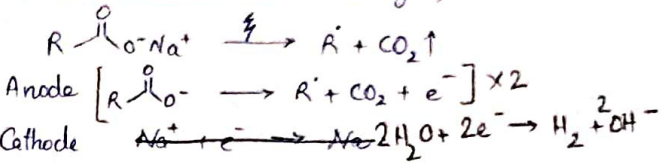 R-C(=O)-O⁻Na⁺ ⟶ Ṙ + CO₂↑
Anode [R-C(=O)-O⁻ ⟶ R˙ + CO₂ + e⁻] ×2
Cathode ~~Na⁺ + e⁻ ⟶ Na~~ 2H₂O + 2e⁻ → H₂ + 2OH⁻